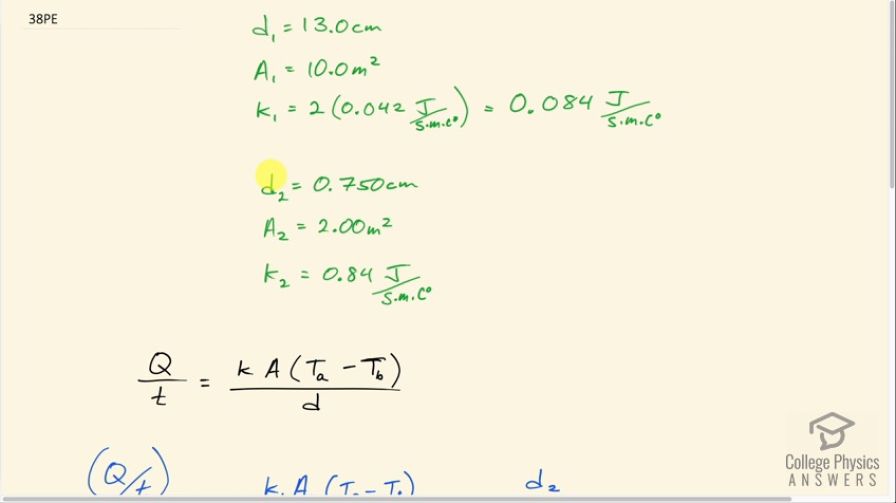 38PE
d₁ = 13.0cm
A₁ = 10.0m²
k₁ = 2(0.042 J/s.m.C°) = 0.084 J/s.m.C°
d₂ = 0.750cm
A₂ = 2.00m²
k₂ = 0.84 J/s.m.C°
Q/t = kA(Tₐ - T_b)/d
(Q/t) k A (T - T ) d₂
College Physics
ANSWERS